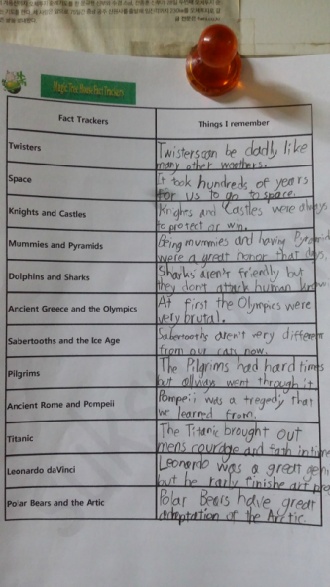 Magic Tree House Fact Trackers
Fact Trackers
Things I remember
Twisters
Twisters can be dadly like
many other weathers.
Space
It took hundreds of years
for us to go to space.
Knights and Castles
Knights and Castles were always
to protect or win.
Mummies and Pyramids
Being mummies and having Pyramid
were a great honor that days.
Dolphins and Sharks
Sharks aren't friendly but
they don't attack human
Ancient Greece and the Olympics
At first the Olympics were
very brutal.
Sabertooths and the Ice Age
Sabertooths aren't very different
from our cats now.
Pilgrims
The Pilgrims had hard times
but went through it
Ancient Rome and Pompeii
Pompeii was a tregedy that
we learned from.
Titanic
The Titanic brought out
mens courage and faith in
Leonardo daVinci
Leonardo was a great
but he rarly finishe art
Polar Bears and the Artic
Polar Bears have great
adaptation of the Arctic.